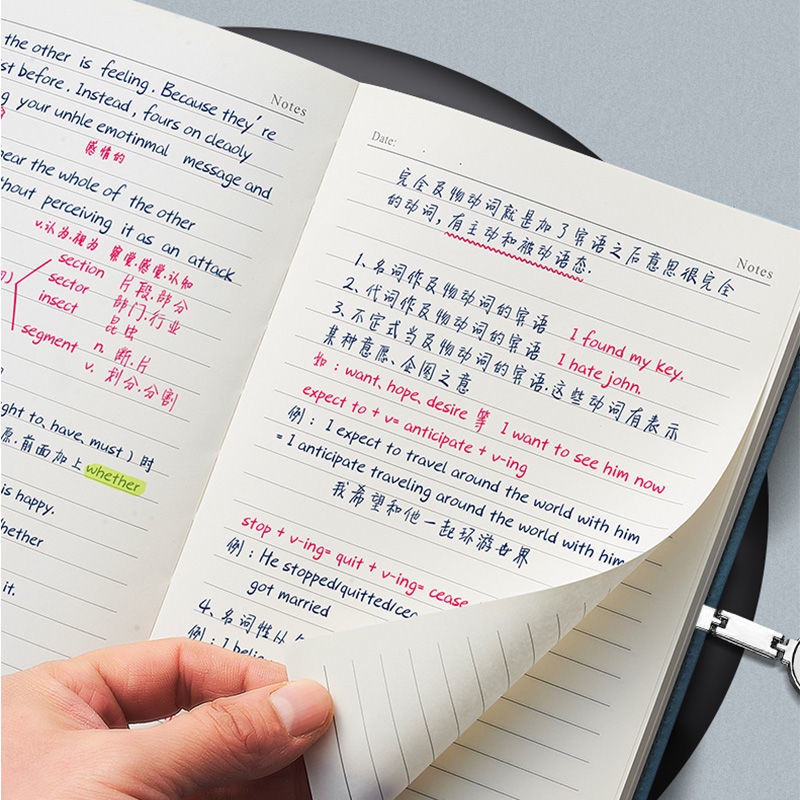 Notes
the other is feeling. Because they're
st before. Instead, fours on cleaoly
g your unhle emotinmal message and
感情的
near the whole of the other
hout perceiving it as an attack
v.认为.视为 察觉.感觉.认知
section 片段.部分
sector 部门.行业
insect 昆虫
segment n. 断.片
v. 划分.分割
ght to, have, must ) 时
原.前面加上 whether
is happy.
hether
it.
Date:
Notes
完全及物动词就是加了宾语之后意思很完全
的动词,有主动和被动语态.
1.名词作及物动词的宾语 I found my key.
2.代词作及物动词的宾语 I hate john.
3.不定式当及物动词的宾语.这些动词有表示
某种意愿、企图之意
如:want、hope、desire 等 I want to see him now
expect to + v= anticipate + v-ing
例:I expect to travel around the world with him
= I anticipate traveling around the world with him
我希望和他一起环游世界
stop + v-ing= quit + v-ing= cease
例:He stopped/quitted/cea
got married
4.名词性从
例:I belie